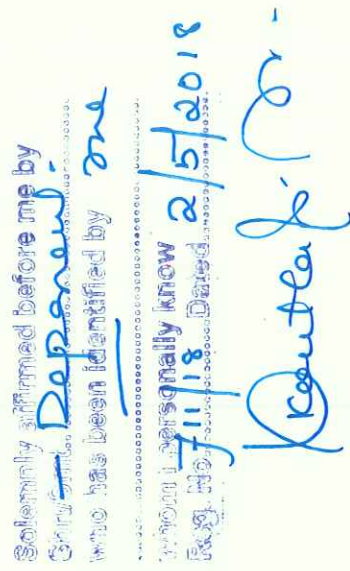 Solemnly affirmed before me by
Shri/Smt. Deponent
who has been identified by me
whom I personally know
Reg. No 711/18 Dated 2/5/2018